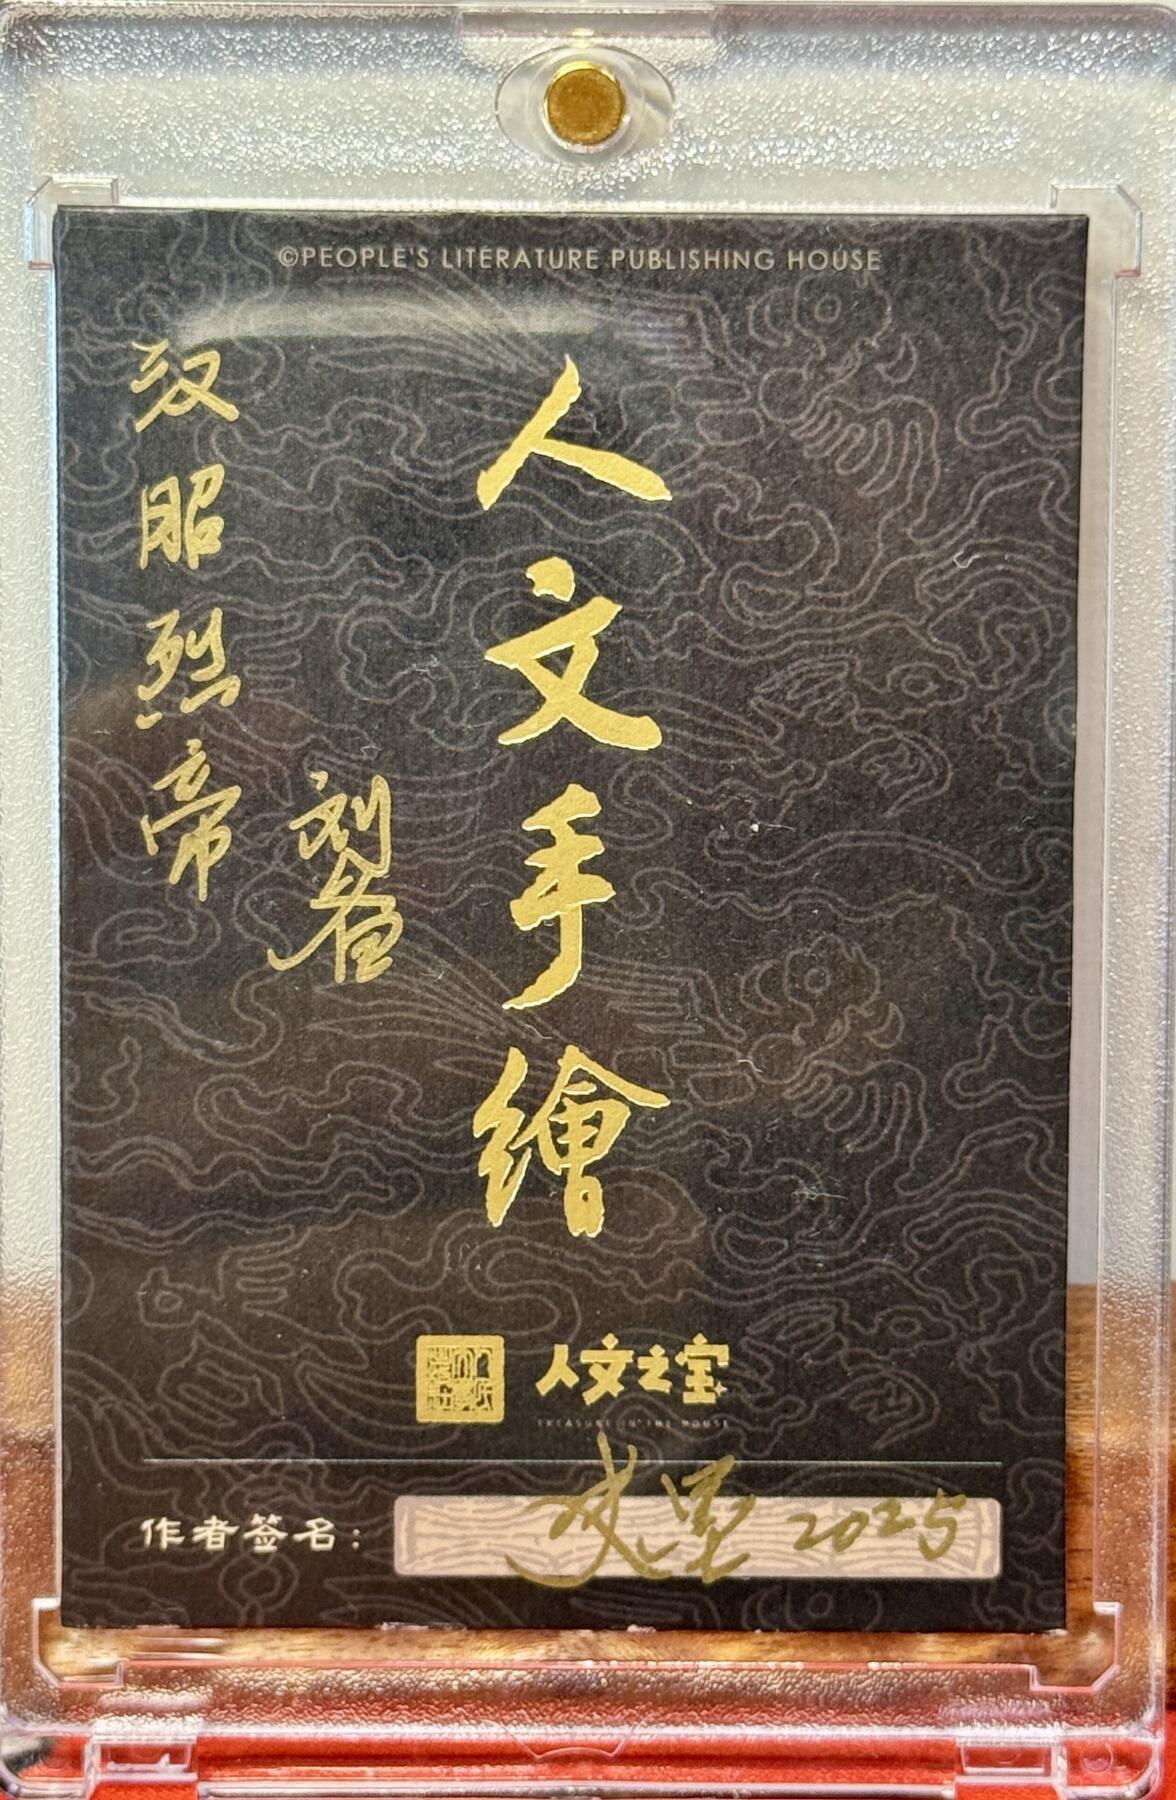 ©PEOPLE'S LITERATURE PUBLISHING HOUSE
人文手繪
汉昭烈帝
刘备
人文之宝
TREASURE IN THE HOUSE
作者签名：
2025